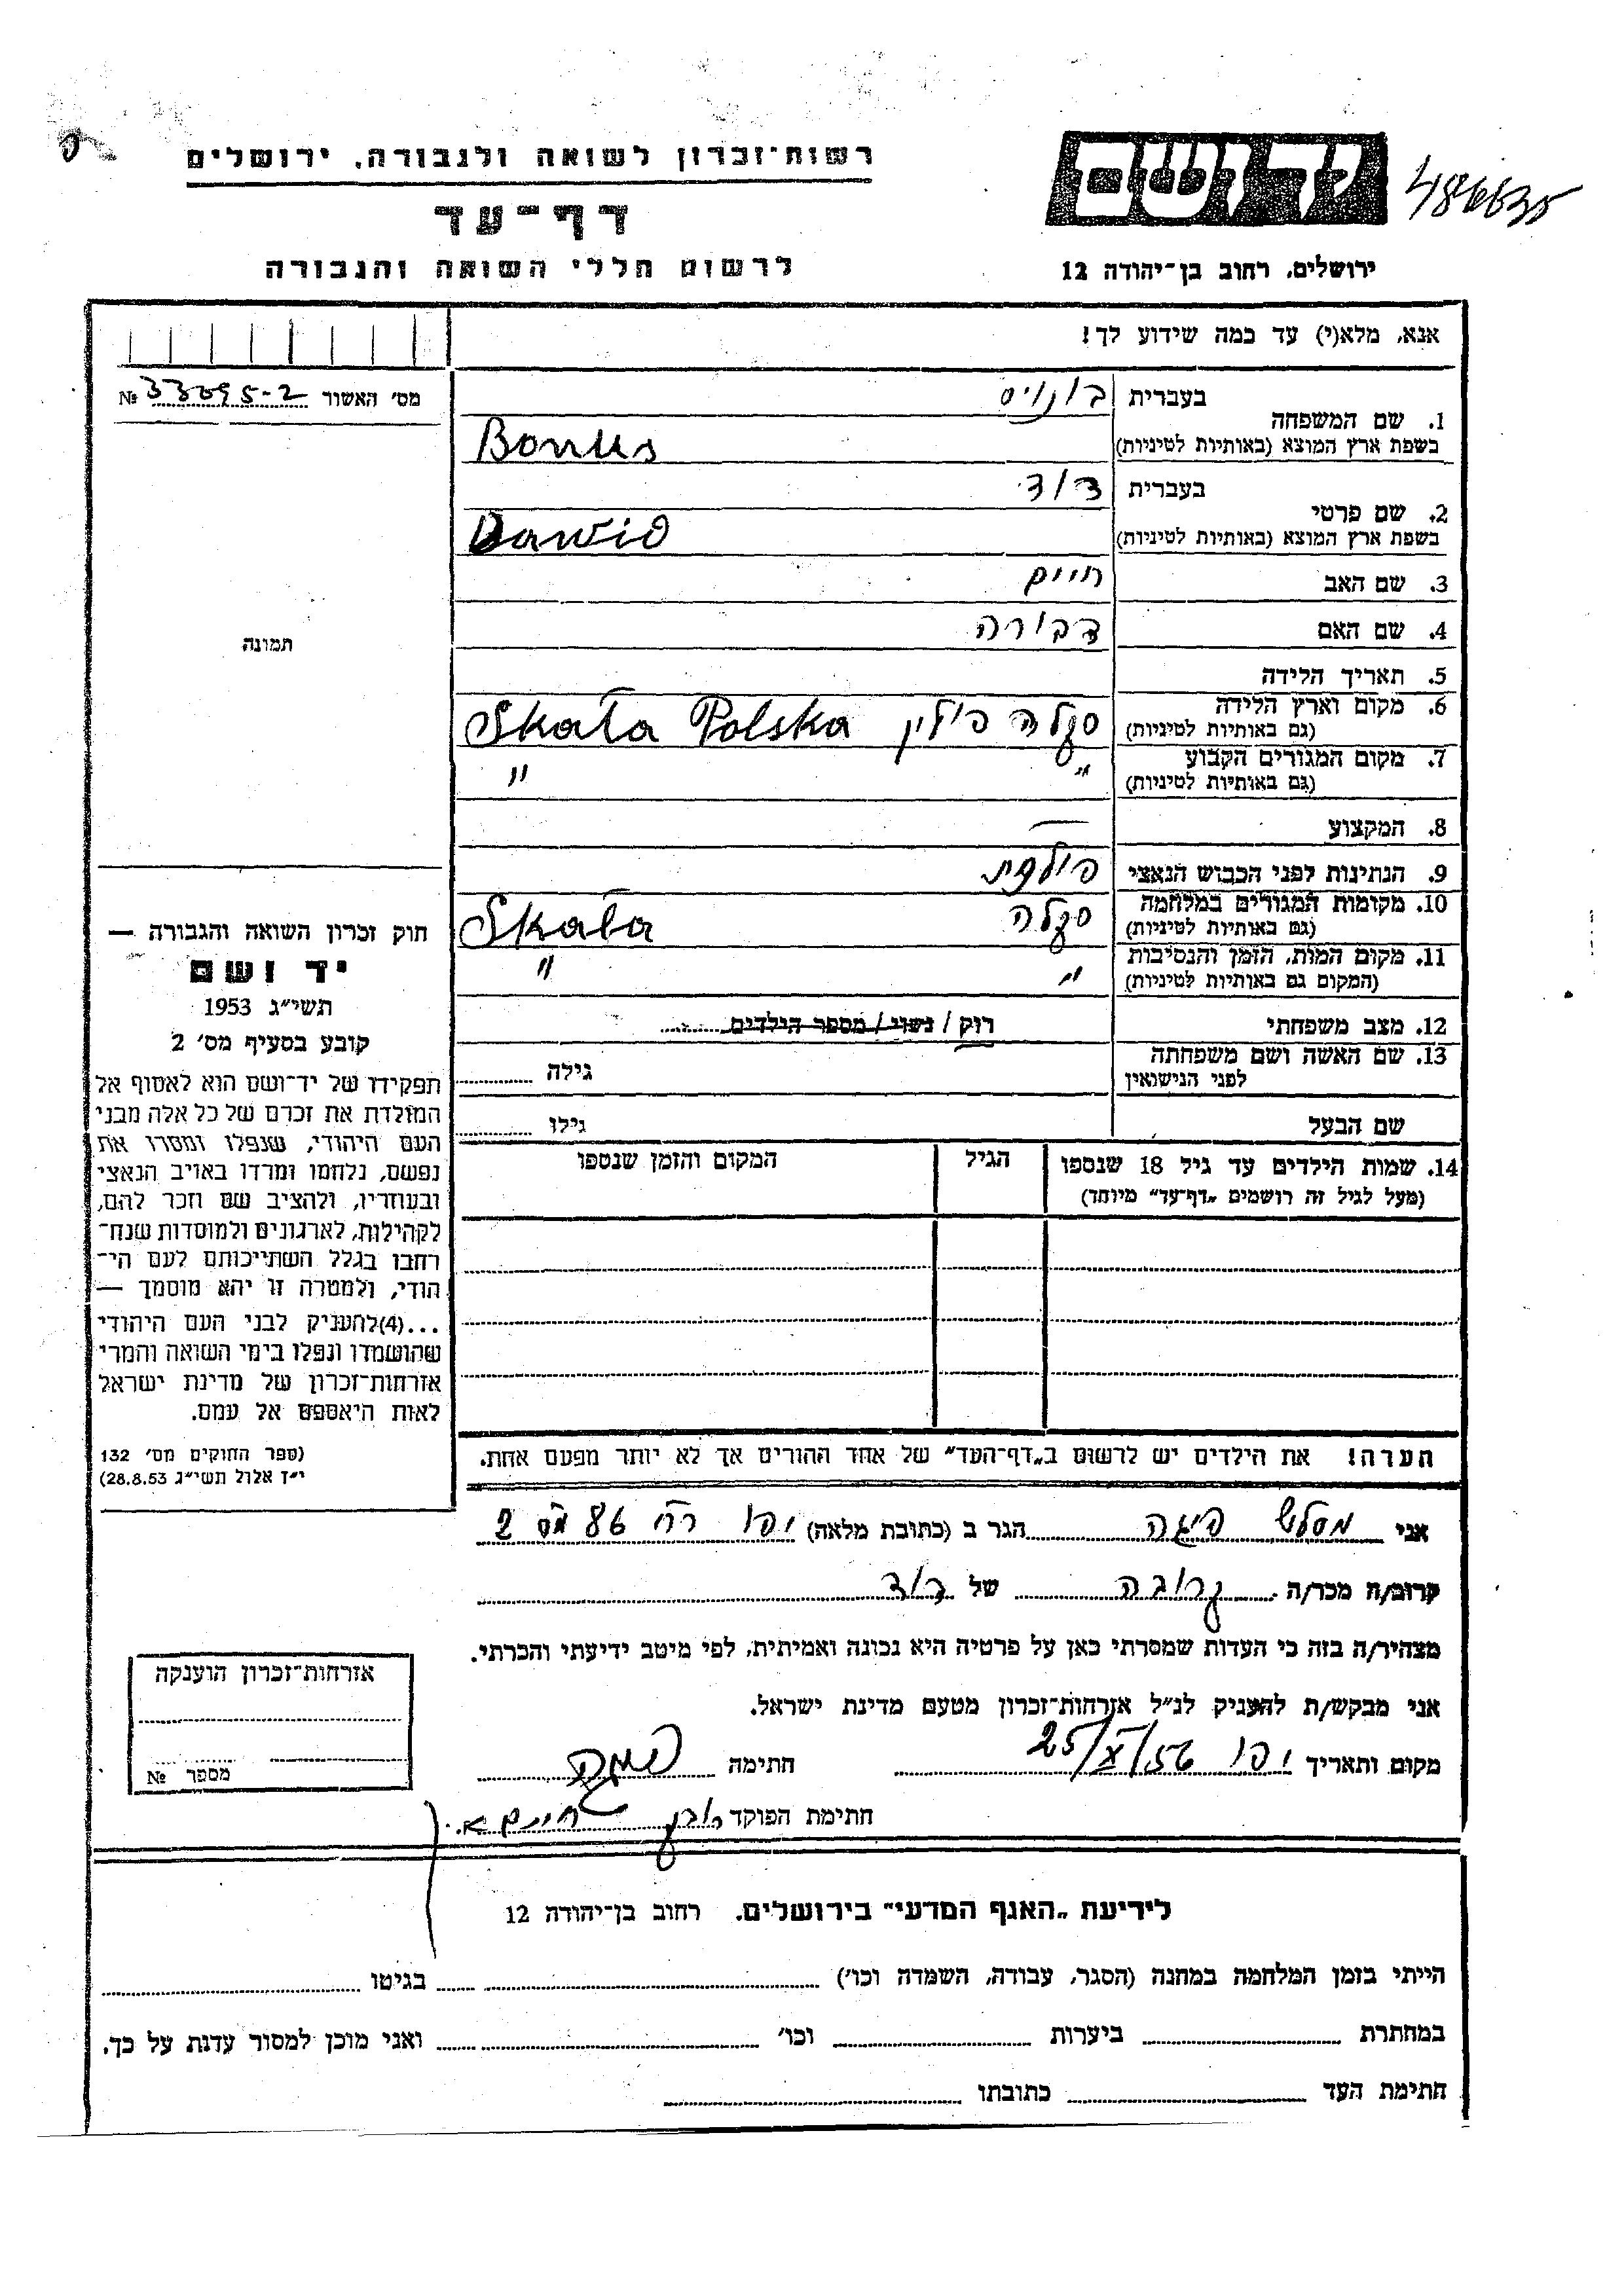 רשות־זכרון לשואה ולגבורה, ירושלים
יד ושם
דף־עד
לרשום חללי השואה והגבורה
ירושלים, רחוב בן־יהודה 12
אנא, מלא(י) עד כמה שידוע לך!
מס׳ האשור № 33095-2
1. שם המשפחה
בעברית
בשפת ארץ המוצא (באותיות לטיניות) Bonus
2. שם פרטי
בעברית דוד
בשפת ארץ המוצא (באותיות לטיניות) Dawid
3. שם האב חיים
4. שם האם דבורה
5. תאריך הלידה
6. מקום וארץ הלידה סקלה פולין Skała Polska
(גם באותיות לטיניות)
7. מקום המגורים הקבוע " "
(גם באותיות לטיניות)
8. המקצוע —
9. הנתינות לפני הכבוש הנאצי פולנית
10. מקומות המגורים במלחמה סקלה Skała
(גם באותיות לטיניות)
11. מקום המות, הזמן והנסיבות " "
(המקום גם באותיות לטיניות)
12. מצב משפחתי רוק / נשוי / מספר הילדים
13. שם האשה ושם משפחתה גילה
לפני הנישואין
שם הבעל גילו
14. שמות הילדים עד גיל 18 שנספו הגיל המקום והזמן שנספו
(מעל לגיל זה רושמים „דף־עד״ מיוחד)
הערה! את הילדים יש לרשום ב„דף־העד״ של אחד ההורים אך לא יותר מפעם אחת.
תמונה
חוק זכרון השואה והגבורה —
יד ושם
תשי״ג 1953
קובע בסעיף מס׳ 2
תפקידו של יד־ושם הוא לאסוף אל
המולדת את זכרם של כל אלה מבני
העם היהודי, שנפלו ומסרו את
נפשם, נלחמו ומרדו באויב הנאצי
ובעוזריו, ולהציב שם וזכר להם,
לקהילות, לארגונים ולמוסדות שנח־
רחבו בגלל השתייכותם לעם הי־
הודי, ולמטרה זו יהא מוסמך —
...(4)להעניק לבני העם היהודי
שהושמדו ונפלו בימי השואה והמרי
אזרחות־זכרון של מדינת ישראל
לאות היאספם אל עמם.
(ספר החוקים מס׳ 132
י״ז אלול תשי״ג 28.8.53)
אני הגר ב (כתובת מלאה) יפו רח׳ 86 מס 2
קרוב/ה מכר/ה קרובה של דוד
מצהיר/ה בזה כי העדות שמסרתי כאן על פרטיה היא נכונה ואמיתית, לפי מיטב ידיעתי והכרתי.
אני מבקש/ת להעניק לנ״ל אזרחות־זכרון מטעם מדינת ישראל.
מקום ותאריך יפו 25/X/56 חתימה
חתימת הפוקד
אזרחות־זכרון הוענקה
מספר №
לידיעת „האגף המדעי״ בירושלים. רחוב בן־יהודה 12
הייתי בזמן המלחמה במחנה (הסגר, עבודה, השמדה וכו׳) בגיטו
במחתרת ביערות וכו׳ ואני מוכן למסור עדות על כך.
חתימת העד כתובתו